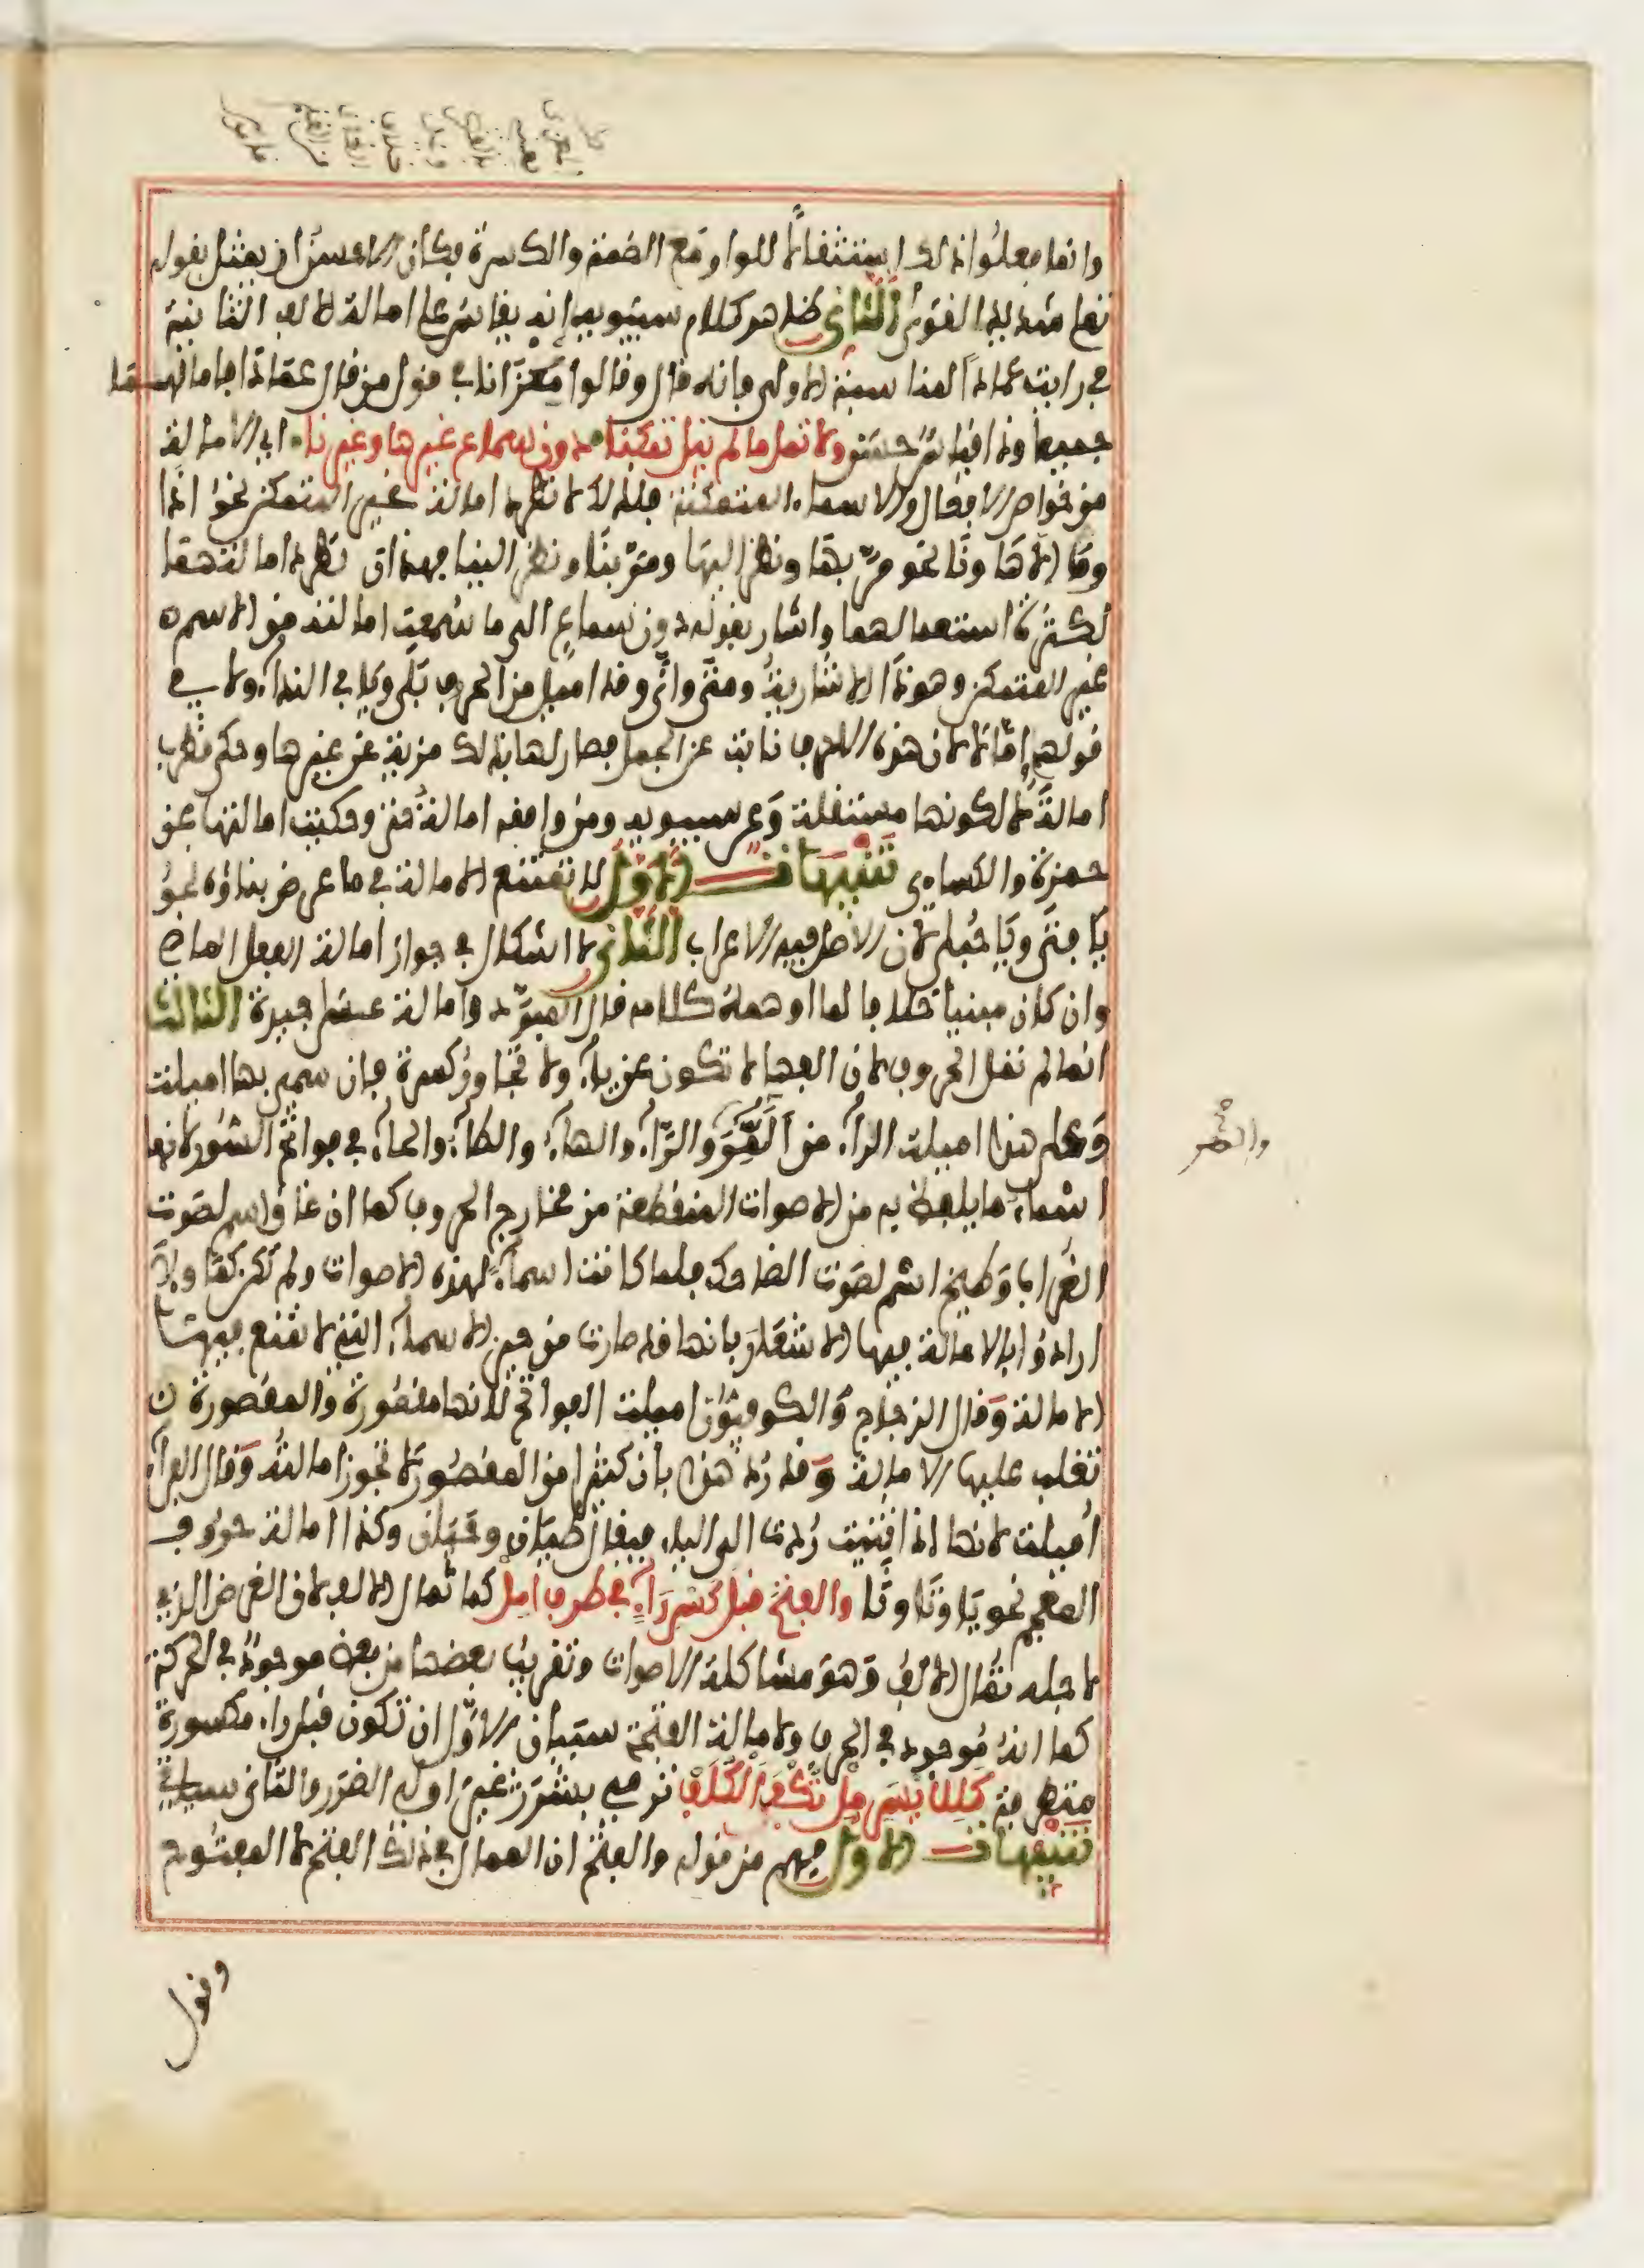 وانما فعلوا ذلك استثقالا للواو مع الضمة والكسرة فكان الاحسن ان يمثل بقوله
تعلى شديد القوى الثاني ظاهر كلام سيبويه انه يقاس على امالة الالف الثانية
في رايت عمادا لمناسبة الاولى فانه قال وقالوا مغزانا في قول من قال عمادا فامالهما
جميعا وذا قياس حسن ولا تمل ما لم ينل تمكنا دون سماع غيرها وغيرنا اي الامالة
من خواص الافعال والاسماء المتمكنة فلذلك لا تطرد امالة غير المتمكن نحو اذا
وما الا ها ونا نحو مر بها ونظر اليها ومر بنا ونظر الينا فهذان تطرد امالتهما
لكثرة استعمالهما واشار بقوله دون سماع الى ما سمعت امالته من الاسم
غير المتمكن وهو ذا الاشارية ومتى وانى وقد اميل من الحروف بلى ويا في النداء ولا في
قولهم اما لا لان هذه الاحرف نابت عن الجمل فصار لها بذلك مزية عن غيرها وحكى قطرب
امالة لا لكونها مستقلة وعن سيبويه ومن وافقه امالة حتى وحكيت امالتها عن
حمزة والكساءي تنبيهات الاول لا تمتنع الامالة في ما عرض بناؤه نحو
يا فتى ويا حبلى لان الاصل فيه الاعراب الثاني لا اشكال في جواز امالة الفعل الماضي
وان كان مبنيا خلافا لما اوهمه كلامه قال المبرد وامالة عسى جيدة الثالث
انما لم تمل الحروف لان الفها لا تكون عن ياء ولا تجاور كسرة فان سمي بها اميلت
وعلى هذا اميلت الراء من المر والر والهاء والطاء والحاء في فواتح السور لانها
اسماء ما يلفظ به من الاصوات المتقطعة من مخارج الحروف كما ان غاق اسم لصوت
الغراب وطيخ اسم لصوت الضاحك فلما كانت اسماء لهذه الاصوات ولم تكن كما ولا
ارادوا بالامالة فيها الاشعار بانها قد صارت من حيز الاسماء التي لا تمتنع فيها
الامالة وقال الزجاج والكوفيون اميلت الفواتح لانها مقصورة والمقصورة
تغلب عليها الامالة وقد رد هذا بان كثيرا من المقصور لا تجوز امالته وقال الفراء
اميلت لانها اذا ثنيت ردت الى الياء فيقال طيان وحيان وكذا امالة حروف
المعجم نحو يا وتا وثا والفتح قبل كسر راء في طرف امل كما تمال الالف لان الغرض الذي
لاجله تمال الالف وهو مشاكلة الاصوات وتقريب بعضها من بعض موجود في الحركة
كما انه موجود في الحرف ولامالة الفتحة سببان الاول ان تكون قبل راء مكسورة
متطرفة كللايسر مل تكف الكلف ترمي بشرر غير اولي الضرر والثاني سياتي
تنبيهات الاول فهم من قوله والفتح ان الممال في ذلك الفتح لا المفتوح
وقول